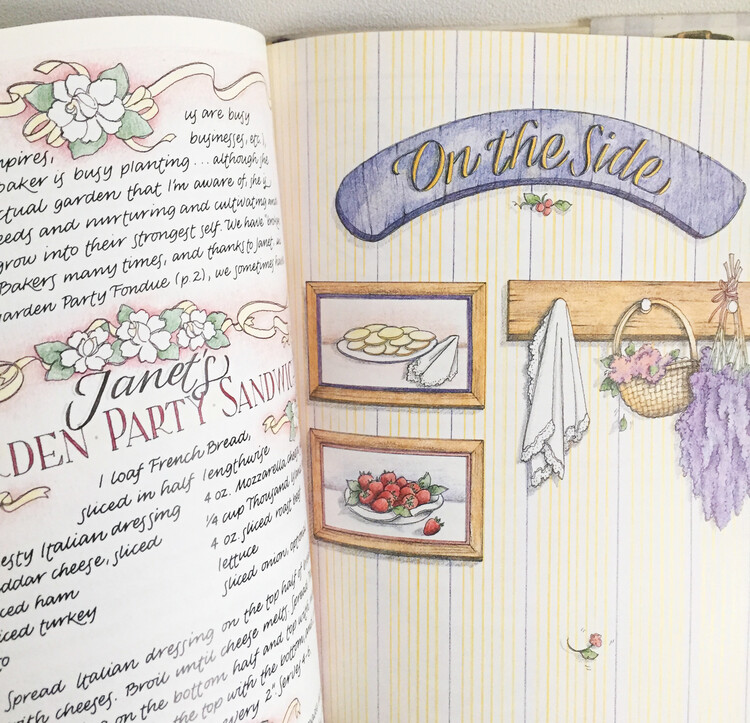 us are busy
businesses, etc.
mpires,
baker is busy planting... although
ctual garden that I'm aware of, she
eeds and nurturing and cultivating
grow into their strongest self. We have
Bakers many times, and thanks to Janet,
garden Party Fondue (p.2), we sometimes
Janet's
RDEN PARTY SANDWIC
1 loaf French Bread,
sliced in half lengthwise
esty Italian dressing
ddar cheese, sliced
ced ham
iced turkey
to
4 oz. Mozzarella
1/4 cup Thousand
4 oz. sliced roast
lettuce
sliced onion,
Spread Italian dressing on the top half of
with cheeses. Broil until cheese melts. Spread
on the bottom half and top with
the top with the bottom,
every 2". Serves 4-6
On the Side